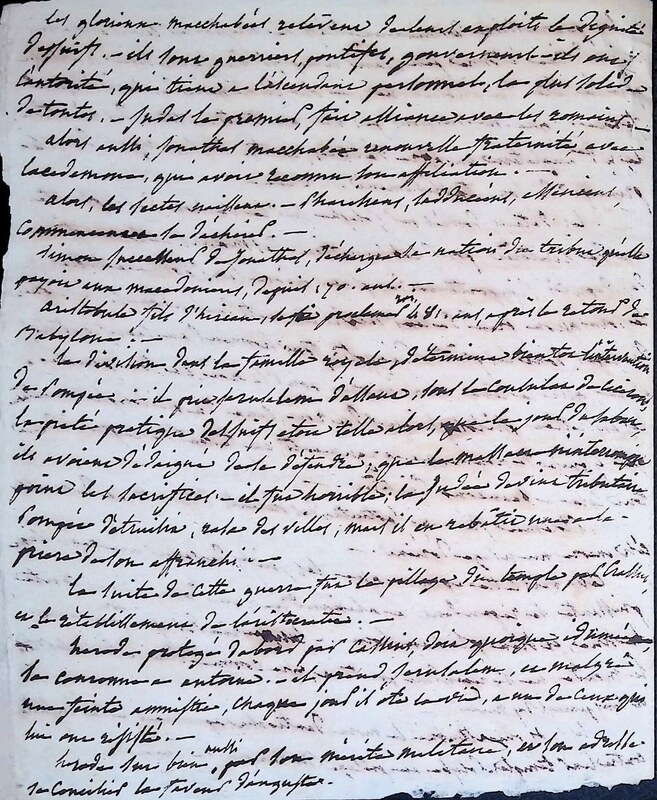 les glorieux macchabées relèvent par leurs exploits la Dignité
des juifs. – ils sont guerriers, pontifes, gouverneurs – ils ont
l'autorité, qui tient a l'ascendant personnel, la plus solide
de toutes. – Judas le premier, fait alliance avec les romains. –
alors aussi, Jonathas macchabée renouvelle fraternité, avec
lacedemone, qui avoit reconnu son affiliation. –
alors, les sectes naissent. – Pharisiens, sadducéens, esséniens,
commencent a se déchirer –
Simon successeur de Jonathas, décharge la nation du tribut qu'elle
payoit aux macedoniens, depuis 170. ans. –
aristobule fils d'hircan, se fit proclamer roi 481. ans, après le retour de
Babylone. –
la division dans la famille royale, détermine bientôt l'intervention
de Pompée. – il prit Jerusalem d'assaut, sous le consulat de Ciceron,
la piété pratique des juifs étoit telle alors, que le jour du sabat,
ils avoient dédaigné de se défendre, que le massacre n'interrompit
point les sacrifices. – il fut horrible, la Judée devint tributaire
Pompée détruisit, rasa des villes, mais il en rebâtit une a la
priere de son affranchi. –
la suite de cette guerre fut le pillage du temple par Crassus,
et le rétablissement de l'aristocratie. –
herode protegé d'abord par Cassius, dont quoique iduméen,
la couronne a antoine. – il prend Jerusalem, et malgré
une feinte amnistie, chaque jour il ôte la vie, a un de ceux qui
lui ont résisté. –
herode sut bien aussi, par son mérite militaire, et son adresse
se concilier la faveur d'auguste. –